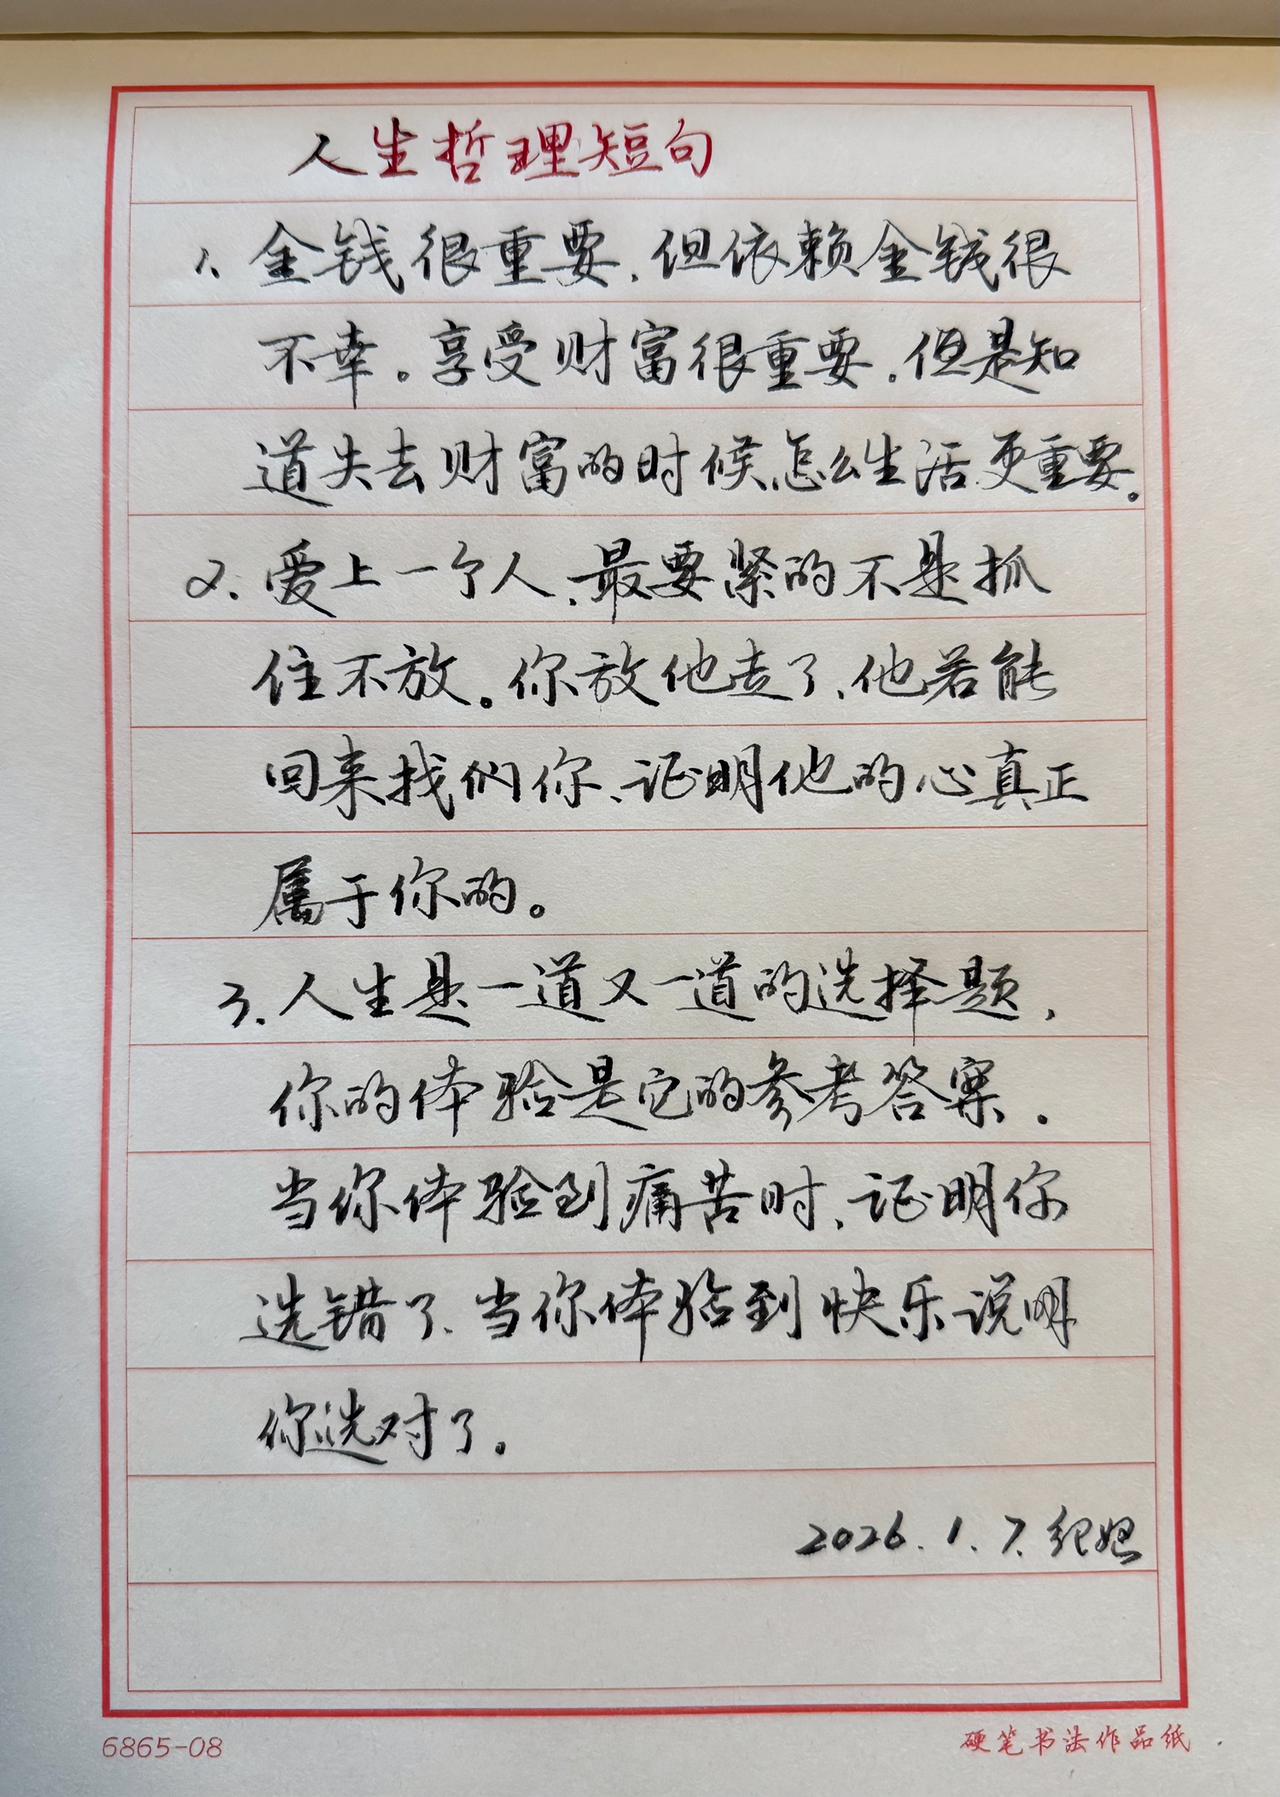 人生哲理短句
1、金钱很重要，但依赖金钱很
不幸。享受财富很重要，但是知
道失去财富的时候、怎么生活更重要。
2、爱上一个人、最要紧的不是抓
住不放。你放他走了、他若能
回来找们你、证明他的心真正
属于你的。
3、人生是一道又一道的选择题，
你的体验是它的参考答案．
当你体验到痛苦时、证明你
选错了、当你体验到快乐说明
你选对了。
2026.1.7.
6865-08
硬笔书法作品纸